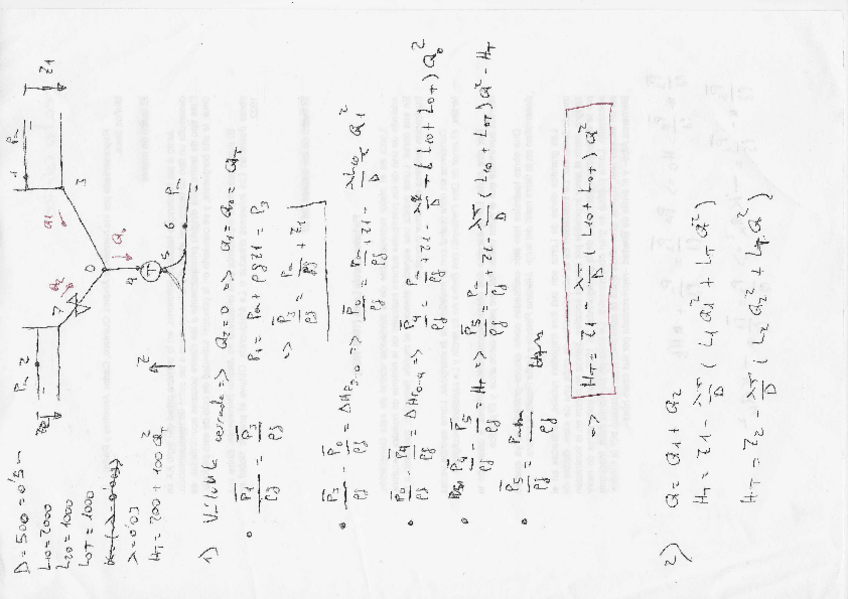 D = 500 = 0'5 m
L10 = 2000
L20 = 1000
LOT = 1000
λ = 0'03
HT = 200 + 100 QT²
Pa 2
Pa
Z1
7
Q2
0
Q1
3
Q0
4
T
5
6 Pa
Z
1) Válvula cerrada => Q2 = 0 => Q1 = Q0 = QT
• P1/ρg = P3/ρg P1 = Pa + ρg Z1 = P3
=> P3/ρg = Pa/ρg + Z1
• P3/ρg - P0/ρg = ΔHf3-0 => P0/ρg = Pa/ρg + Z1 - Q1²
• P0/ρg - P4/ρg = ΔHf0-4 => P4/ρg = Pa/ρg + Z1 - (L10 + LOT) Q0²
• P4/ρg - P5/ρg = HT => P5/ρg = Pa/ρg + Z1 - λr/D (L10 + LOT) Q² - HT
• P5/ρg = Patm/ρg
=> HT = Z1 - λr/D (L10 + LOT) Q²
2) Q = Q1 + Q2
HT = Z1 - λr/D (L1 Q1² + LT Q²)
HT = Z2 - λr/D (L2 Q2² + LT Q²)